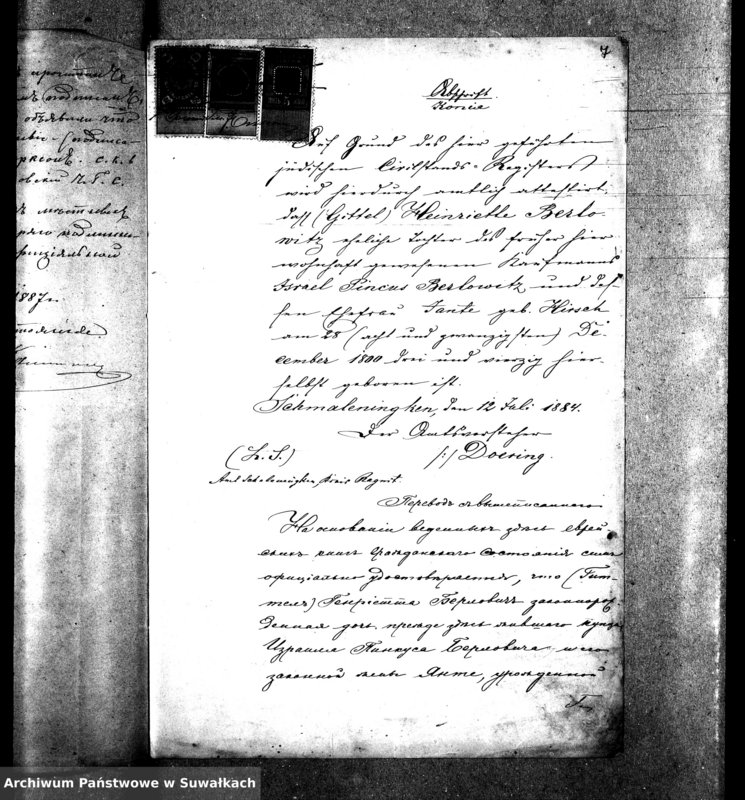 7
Abschrift
Kopie
Auf Grund des hier geführten
jüdischen Civilstands-Registers
wird hierdurch amtlich attestirt,
daß (Gittel) Heinriette Berlo-
witz eheliche Tochter des früher hier
wohnhaft gewesenen Kaufmanns
Israel Pincus Berlowitz und des-
sen Ehefrau Jante geb. Hirsch
am 28 (acht und zwanzigsten) De-
cember 1800 drei und vierzig hier-
selbst geboren ist.
Schmaleningken, den 12 Juli 1884.
Der Amtsvorsteher
(L. S.) /:/ Doering.
Amt Schmaleningken, Kreis Ragnit.
Переводъ съ вышеписаннаго
На основаніи веденныхъ здѣсь еврей-
скихъ книгъ гражданскаго состоянія симъ
официально удостовѣряется, что (Гит-
тель) Генріэтта Берловичъ законнорож-
денная дочь прежде здѣсь жившаго купца
Израиля Пинкуса Берловича и его
законной жены Янте, урожденной
Г
объявили что
с. к. в
1887 г.
Archiwum Państwowe w Suwałkach